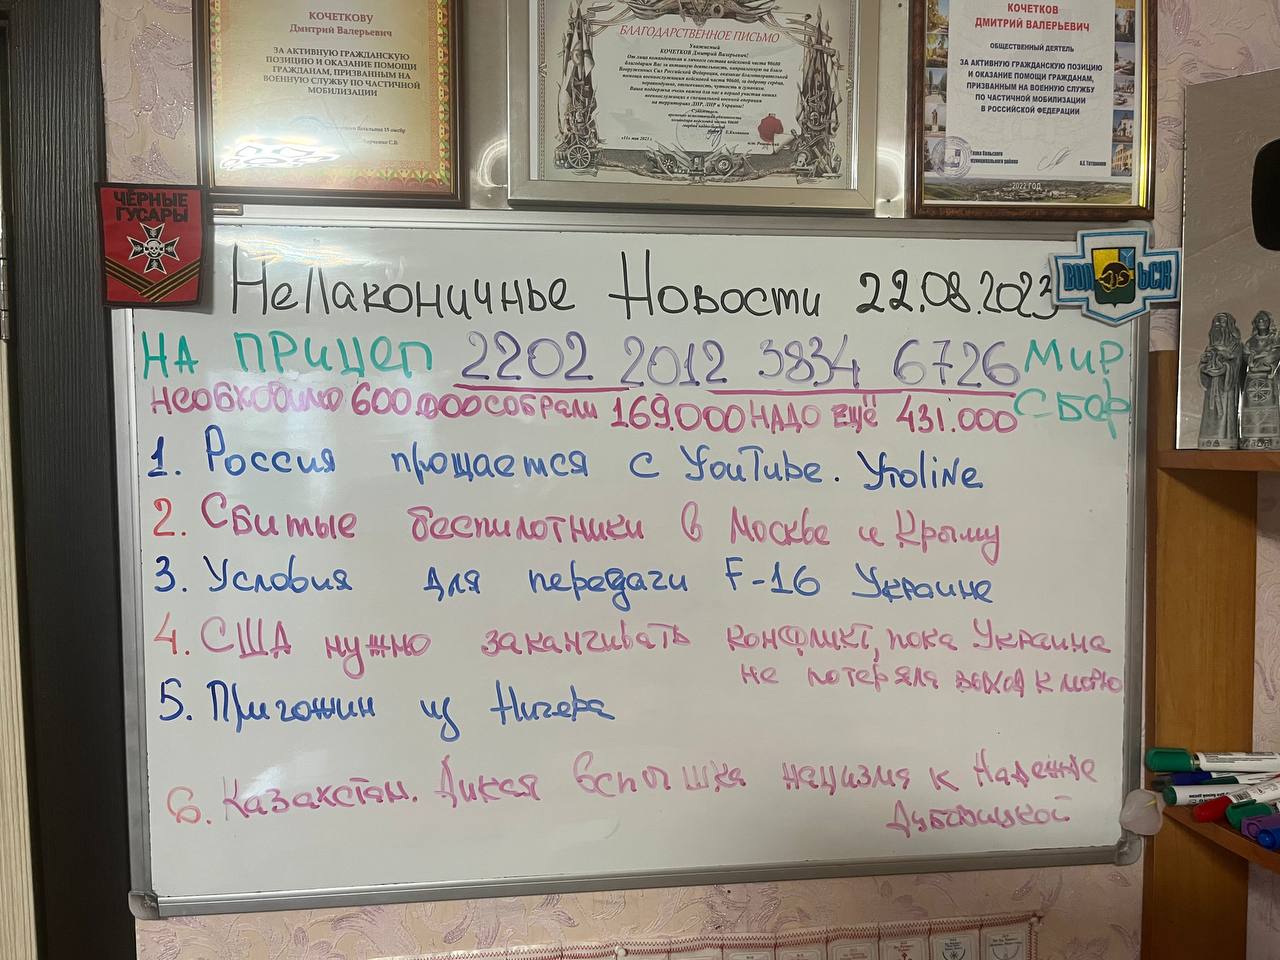 КОЧЕТКОВУ
Дмитрий Валерьевич
ЗА АКТИВНУЮ ГРАЖДАНСКУЮ
ПОЗИЦИЮ И ОКАЗАНИЕ ПОМОЩИ
ГРАЖДАНАМ, ПРИЗВАННЫМ НА
ВОЕННУЮ СЛУЖБУ ПО ЧАСТИЧНОЙ
МОБИЛИЗАЦИИ
БЛАГОДАРСТВЕННОЕ ПИСЬМО
Уважаемый
КОЧЕТКОВ Дмитрий Валерьевич!
КОЧЕТКОВ
ДМИТРИЙ ВАЛЕРЬЕВИЧ
ОБЩЕСТВЕННЫЙ ДЕЯТЕЛЬ
ЗА АКТИВНУЮ ГРАЖДАНСКУЮ ПОЗИЦИЮ
И ОКАЗАНИЕ ПОМОЩИ ГРАЖДАНАМ,
ПРИЗВАННЫМ НА ВОЕННУЮ СЛУЖБУ
ПО ЧАСТИЧНОЙ МОБИЛИЗАЦИИ
В РОССИЙСКОЙ ФЕДЕРАЦИИ
2022 ГОД
ЧЁРНЫЕ
ГУСАРЫ
ВОЛЬСК
НеЛаконичнье Новости 22.08.2023
НА ПРИЦЕП 2202 2012 3834 6726 МИР
СБЕР
необходимо 600.000 собрали 169.000 НАДО ЕЩЁ 431.000
1. Россия прощается с YouTube. Уtoline
2. Сбитые беспилотники в Москве и Крыму
3. Условия для передачи F-16 Украине
4. США нужно заканчивать конфликт, пока Украина
не потеряла выход к морю
5. Пригожин из Нигера
6. Казахстан. Дикая вспышка нацизма к Надежде
Дубовицкой